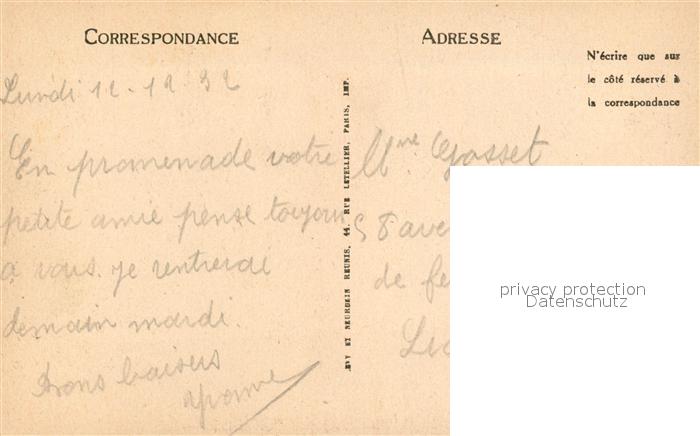 CORRESPONDANCE
ADRESSE
N'écrire que sur
le côté réservé à
la correspondance
Lundi 12.12.32
En promenade votre
petite amie pense toujours
a vous. je rentrerai
demain mardi.
Bons baisers
Yvonne
LEVY ET NEURDEIN REUNIS, 44, RUE LETELLIER, PARIS, IMP.
Mme Gosset
de
privacy protection
Datenschutz